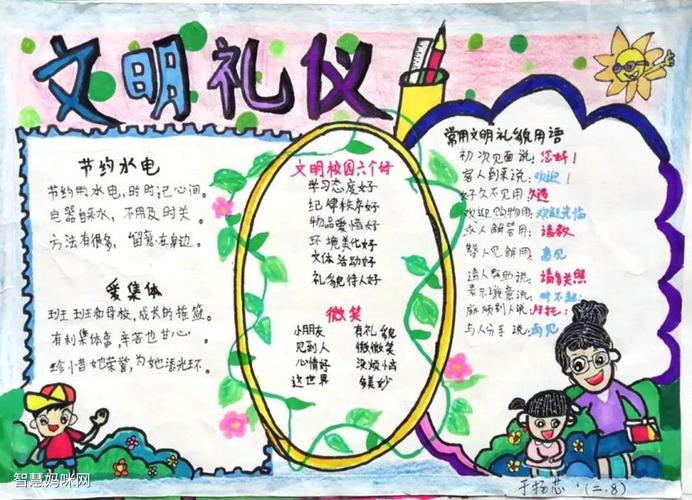 文明礼仪
节约水电
节约用水电，时时记心间。
电器自来水，不用及时关。
方法有很多，留意在身边。
爱集体
班班班和母校，成长的摇篮。
有利集体事，辛苦也甘心。
珍惜她荣誉，为她添光环。
文明校园六个好
学习态度好
纪律秩序好
物品爱惜好
环境美化好
文体活动好
礼貌待人好
微笑
小朋友 有礼貌
见到人 微微笑
心情好 没烦恼
这世界 多美妙
常用文明礼貌用语
初次见面说：您好！
客人到来说：欢迎！
好久不见用久违
欢迎购物用：欢迎光临
求人解答用：请教
赞人见解用：高见
请人帮助说：请多关照
表示歉意说：对不起！
麻烦别人说：拜托！
与人分手说：再见
于扬芯·（二.8）
智慧妈咪网